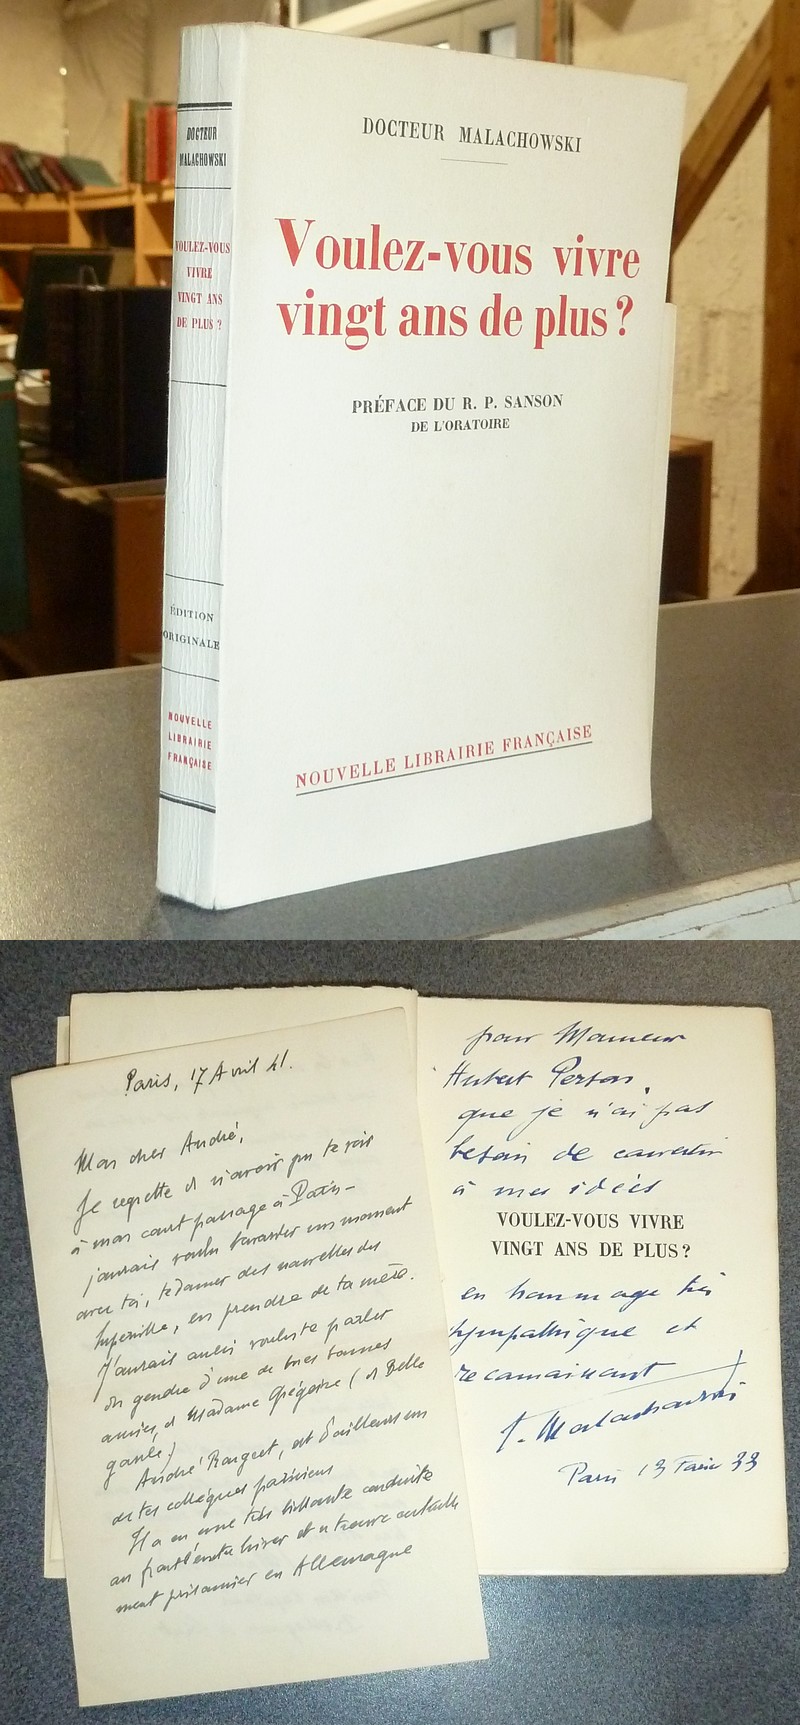 DOCTEUR
MALACHOWSKI
VOULEZ-VOUS
VIVRE
VINGT ANS
DE PLUS ?
ÉDITION
ORIGINALE
NOUVELLE
LIBRAIRIE
FRANÇAISE
DOCTEUR MALACHOWSKI
Voulez-vous vivre
vingt ans de plus ?
PRÉFACE DU R. P. SANSON
DE L'ORATOIRE
NOUVELLE LIBRAIRIE FRANÇAISE
Paris, 17 Avril 41.
Mon cher André,
Je regrette de n'avoir pu te voir
à mon court passage à Paris -
j'aurais voulu bavarder un moment
avec toi, te donner des nouvelles de
, en prendre de ta mère.
J'aurais aussi voulu te parler
du gendre d'une de mes bonnes
amies, de Madame Grégoire ( de Belle
garde.)
André , est d'ailleurs un
de tes collègues parisiens
Il a eu une très brillante conduite
au front l'hiver et se trouve actuelle
ment prisonnier en Allemagne
pour Monsieur
Hubert
que je n'ai pas
besoin de convertir
à mes idées
VOULEZ-VOUS VIVRE
VINGT ANS DE PLUS ?
en hommage très
sympathique et
reconnaissant
J. Malachowski
Paris 13 33